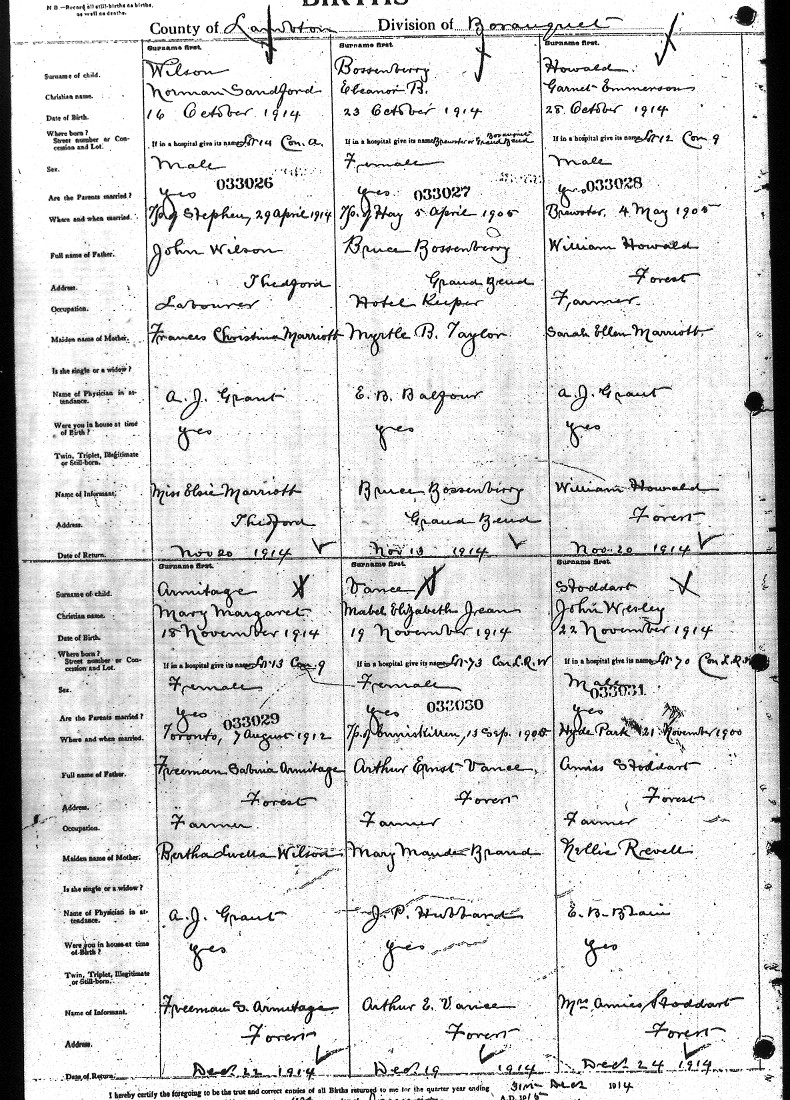 BIRTHS
N B —Record all still-births as births, as well as deaths.
County of Lambton Division of Bosanquet
Surname first. Surname first. Surname first.
Surname of child. Wilson Bossenberry Howald
Christian name. Norman Sandford Eleanor B. Garnet Emmerson
Date of Birth. 16 October 1914 23 October 1914 28 October 1914
Where born? Street number or Concession and Lot. If in a hospital give its name Lot 14 Con. A. If in a hospital give its name Brewster or Grand Bend Bosanquet If in a hospital give its name Lot 12 Con 9
Sex. Male Female Male
033026 033027 033028
Are the Parents married? yes yes yes
Where and when married. Tp. of Stephen, 29 April 1914 Tp. of Hay 5 April 1905 Brewster, 4 May 1905
Full name of Father. John Wilson Bruce Bossenberry William Howald
Address. Thedford Grand Bend Forest
Occupation. Labourer Hotel Keeper Farmer
Maiden name of Mother. Frances Christina Marriott Myrtle B. Taylor Sarah Ellen Marriott
Is she single or a widow?
Name of Physician in attendance. A. J. Grant E. B. Balfour A. J. Grant
Were you in house at time of Birth? yes yes yes
Twin, Triplet, Illegitimate or Still-born.
Name of Informant. Miss Elsie Marriott Bruce Bossenberry William Howald
Address. Thedford Grand Bend Forest
Date of Return. Nov 20 1914 Nov 13 1914 Nov. 20 1914
Surname first. Surname first. Surname first.
Surname of child. Armitage Vance Stoddart
Christian name. Mary Margaret Mabel Elizabeth Jean John Wesley
Date of Birth. 18 November 1914 19 November 1914 22 November 1914
Where born? Street number or Concession and Lot. If in a hospital give its name Lot 13 Con. 9 If in a hospital give its name Lot 73 Con. L. R. W If in a hospital give its name Lot 70 Con L. R. W
Sex. Female Female Male
033029 033030 033031
Are the Parents married? yes yes yes
Where and when married. Toronto, 7 August 1912 Tp. of Enniskillen, 13 Sep. 1905 Hyde Park 21 November 1900
Full name of Father. Freeman Sabina Armitage Arthur Ernst Vance Amiss Stoddart
Address. Forest Forest Forest
Occupation. Farmer Farmer Farmer
Maiden name of Mother. Bertha Luella Wilson Mary Maude Brand Nellie Revell
Is she single or a widow?
Name of Physician in attendance. A. J. Grant J. P. Hubbard E. B. Blain
Were you in house at time of Birth? yes yes yes
Twin, Triplet, Illegitimate or Still-born.
Name of Informant. Freeman S. Armitage Arthur E. Vance Mrs Amies Stoddart
Address. Forest Forest Forest
Date of Return. Dec 22 1914 Dec 19 1914 Dec 24 1914
I hereby certify the foregoing to be the true and correct entries of all Births returned to me for the quarter year ending 31st Dec 1914
A.D. 1915